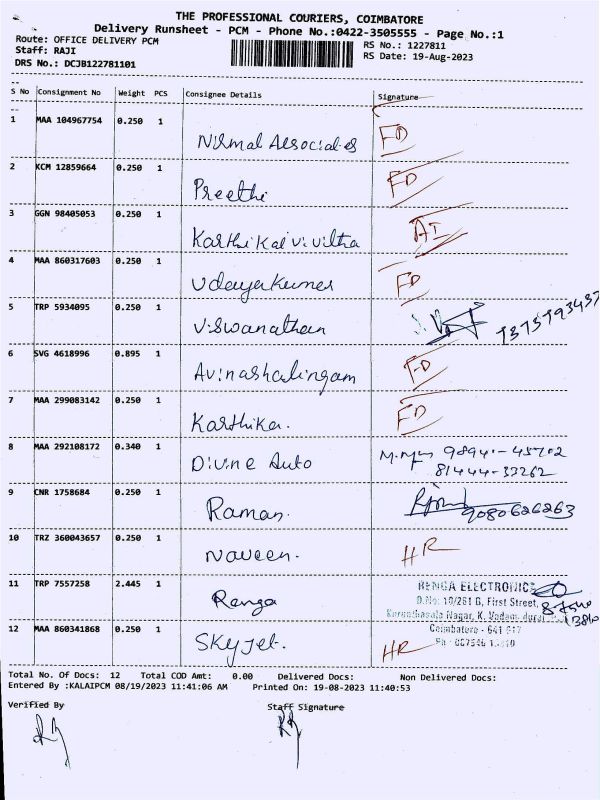 THE PROFESSIONAL COURIERS, COIMBATORE
Delivery Runsheet - PCM - Phone No.:0422-3505555 - Page No.:1
Route: OFFICE DELIVERY PCM
RS No.: 1227811
Staff: RAJI
RS Date: 19-Aug-2023
DRS No.: DCJB122781101
S No Consignment No Weight PCS Consignee Details Signature
1 MAA 104967754 0.250 1 Nirmal Associates FD
2 KCM 12859664 0.250 1 Preethi FD
3 GGN 98405053 0.250 1 Karthikai AI
4 MAA 860317603 0.250 1 Udayakumar FD
5 TRP 5934095 0.250 1 Viswanathan
6 SVG 4618996 0.895 1 Avinashalingam FD
7 MAA 299083142 0.250 1 Karthika. FD
8 MAA 292108172 0.340 1 Divine Auto
81444-33262
9 CNR 1758684 0.250 1 Raman. 9080626263
10 TRZ 360043657 0.250 1 Naveen. HR
11 TRP 7557258 2.445 1 Renga RENGA ELECTRONICS
D.No: 10/281 B, First Street,
Nagar, K. Vadam
Coimbatore - 641
12 MAA 860341868 0.250 1 Skyjet. HR
Total No. Of Docs: 12 Total COD Amt: 0.00 Delivered Docs: Non Delivered Docs:
Entered By :KALAIPCM 08/19/2023 11:41:06 AM Printed On: 19-08-2023 11:40:53
Verified By Staff Signature